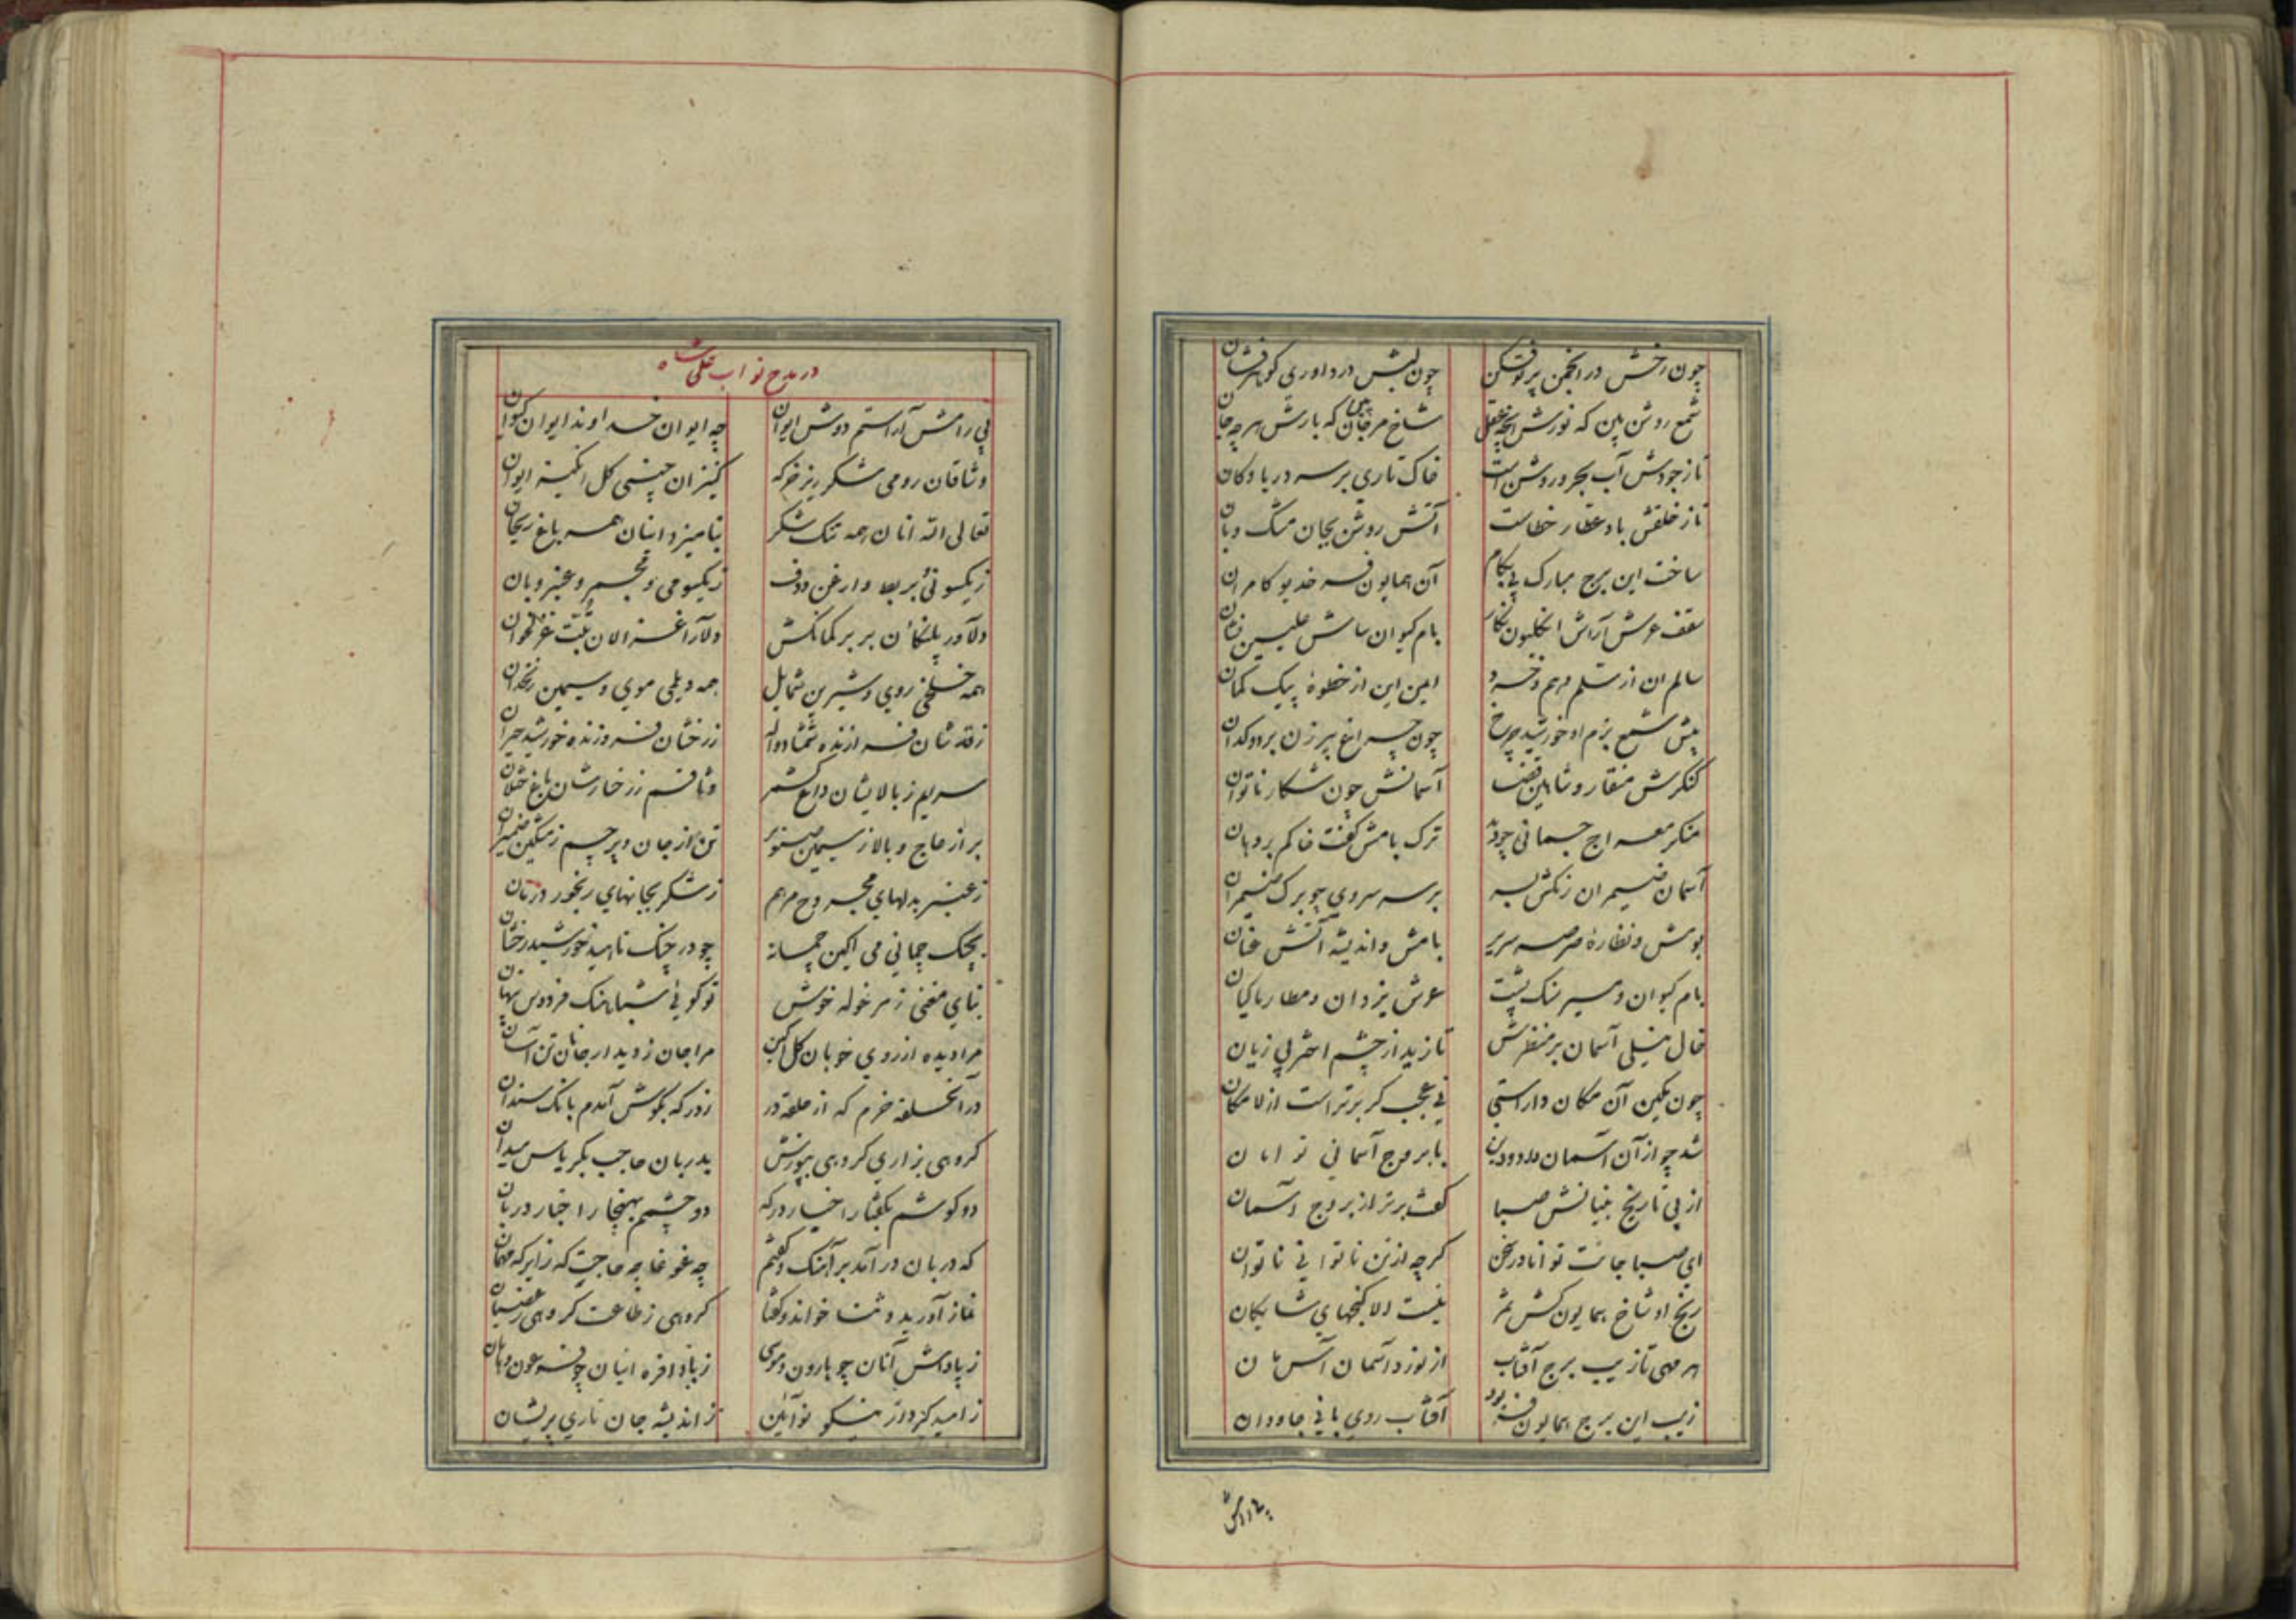 چون رخش در انجمن پرتوفکن چون لبش در داوری گوهرفشان
شمع روشن بین که نورش هر چه عقل شاخ مرجان بین که بارش هر چه جان
تا ز جودش آب بحر و روشن است خاک تاری بر سر دریا و کان
تا ز خلقش باد عطار خطاست آتش روشن بجان مشک و بان
ساخت این برج مبارک پی بکام آن همایون فر خدیو کامران
سقف عرش آرایش انگلیون نگار بام کیوان سایش علیین نشان
سالم آن از سلم وهم و خرد ایمن این از خطوهٔ پیک گمان
پیش شمع بزم او خورشید چرخ چون چراغ پیرزن بر دوکدان
کنگرش منقار و شاهین قضا آسمانش چون شکار ناتوان
منکر معراج جسمانی چو دید ترک بامش گفت خاکم بر دهان
آسمان ضیمران رنگش بسر بر سر سروی چو برگ ضیمران
بومش و نظارهٔ صرصر سریر بامش و اندیشهٔ آتش عنان
بام کیوان و مسیر سنگ پشت عرش یزدان و مطار ماکیان
خال نیلی آسمان بر منظرش تا زید از چشم اختر بی زیان
چون مکین آن مکان داراستی نی عجب گر برتر است از لامکان
شد چو از آن آسمان داد و دین با بروج آسمانی توامان
از پی تاریخ بنیانش صبا گفت برتر از بروج آسمان
ای صبا جانت توانا در سخن گرچه از تن ناتوانی ناتوان
رنج او شاخ همایون کش ثمر نیست الا گنجهای شایگان
هر مهی تا زیب برج آفتاب از نورد آسمان آسمان
زیب این برج همایون فر بود آفتاب روی بانی جاودان
در مدح نواب علی شاه
پی رامش آراستم دوش ایوان چه ایوان خداوند ایوان کیوان
وثاقان رومی شکرریز خرگه کنیزان چینی گل انگیز ایوان
تعالی الله آنان همه تنک شکر بنامیزد اینان همه باغ ریحان
ز یکسو نی و بربط و ارغن و دف ز یکسو می و مجمر و عنبر و بان
دلاور پلنگان بربر کمانکش دلارا غزالان تبت غزلخوان
همه خلخی روی و شیرین شمایل همه دیلمی موی و سیمین زنخدان
ز قدشان فرازنده شمشاد واله ز رخشان فروزنده خورشید حیران
سرایم ز بالایشان داغ کشمر وثاقم ز رخسارشان باغ ختلان
بر از عاج و بالا ز سیمین صنوبر تن از جان و پرچم ز مشکین ضمیران
ز عنبر بدلهای مجروح مرهم ز شکر بجانهای رنجور درمان
بچنگ چمانی می آگین چمانه چو در چنگ ناهید خورشید رخشان
بنای مغنی ز مرغوله خوش تو گوئی شباهنگ فردوس پنهان
مرا دیده از روی خوبان گل آگین مرا جان ز دیدار جانان تن آسان
در آن خلقه خرم که از حلقه در ز درگه بگوش آمدم بانک سندان
گروهی بزاری گروهی بپوزش بدربان حاجب بکریاس میدان
دو گوشم بگفتار اخبار درگه دو چشمم بهنجار اخبار دربان
که دربان درآمد برآهنگ و گفتم چه غوغا چه حاجت که زایر که مهمان
نماز آورید و ثنا خواند و گفتا گروهی ز طاعت گروهی ز عصیان
ز پاداش آنان چو هارون و موسی ز باد افره اینان چو فرعون و هامان
ز امید کردار نیکو نوآئین ز اندیشه جان تاری پریشان